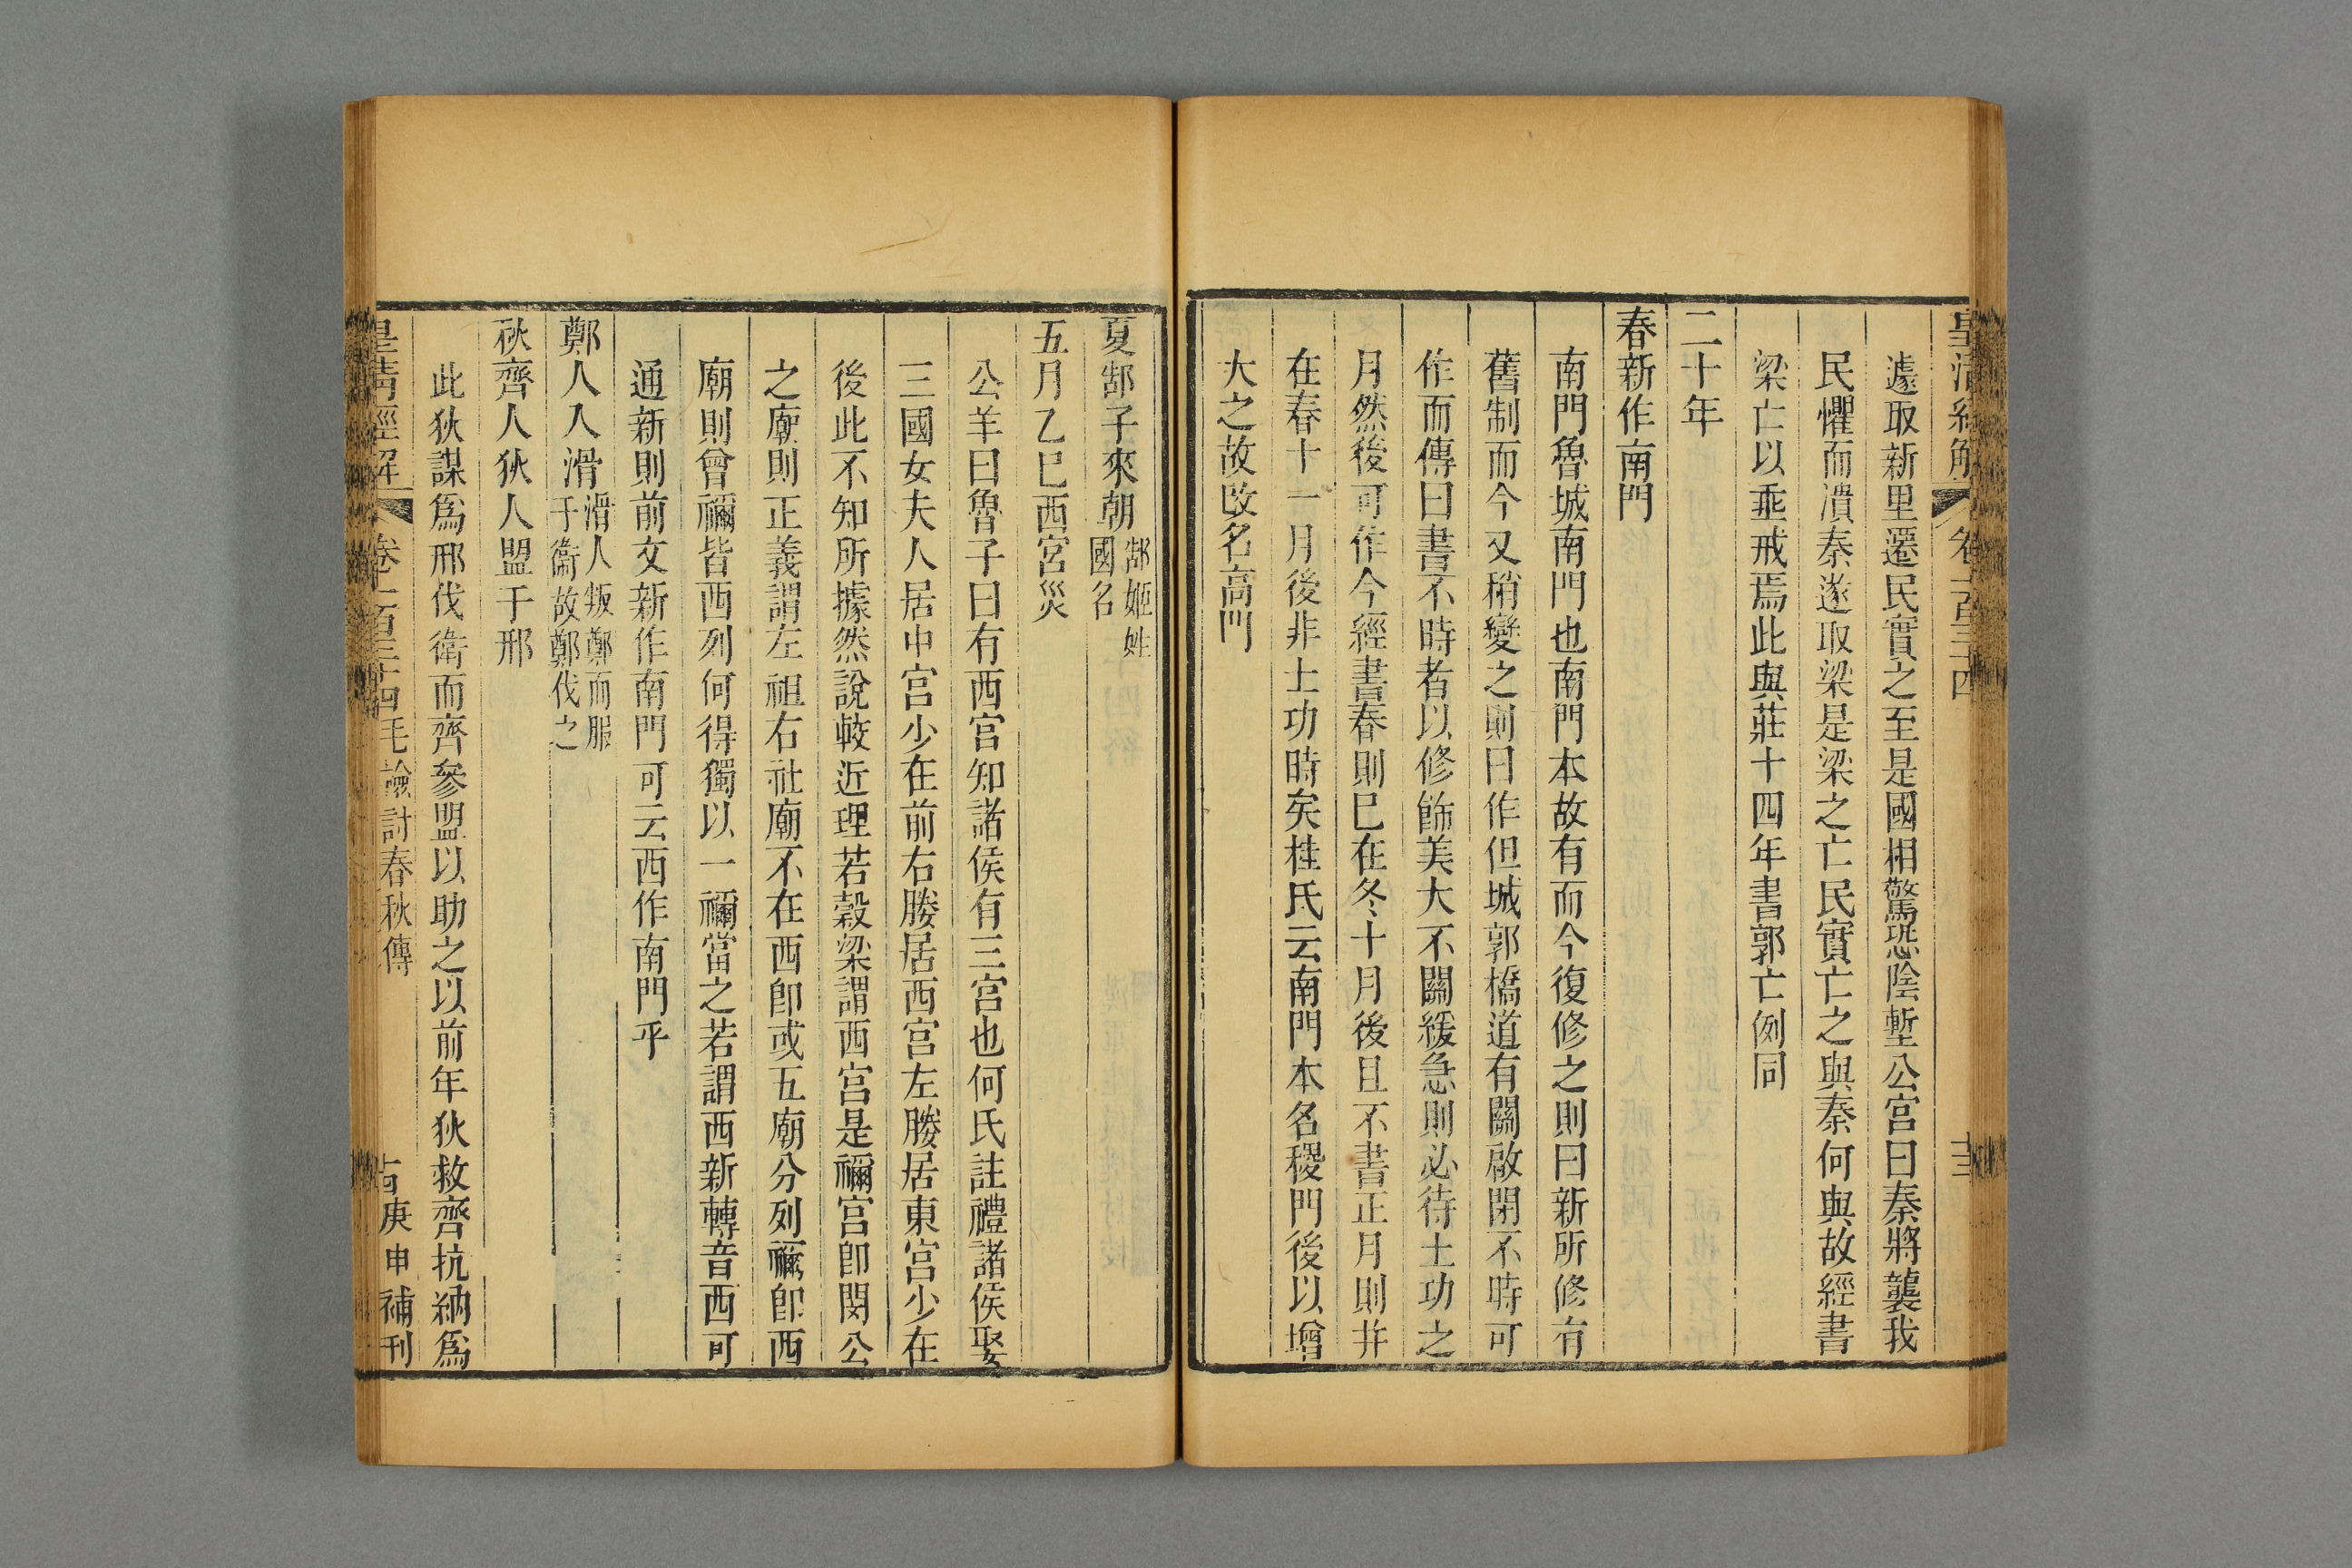 皇清經解 卷一百三十四 十三
遽取新里遷民實之至是國相驚恐陰塹公宮曰秦將襲我
民懼而潰秦遂取梁是梁之亡民實亡之與秦何與故經書
梁亡以垂戒焉此與莊十四年書郭亡例同
二十年
春新作南門
南門魯城南門也南門本故有而今復修之則曰新所修有
舊制而今又稍變之則曰作但城郭橋道有關啟閉不時可
作而傳曰書不時者以修飾美大不關緩急則必待土功之
月然後可作今經書春則巳在冬十月後且不書正月則幷
在春十一月後非土功時矣桂氏云南門本名稷門後以增
大之故改名高門
夏郜子來朝郜姬姓
國名
五月乙巳西宮災
公羊曰魯子曰有西宮知諸侯有三宮也何氏註禮諸侯娶
三國女夫人居中宮少在前右媵居西宮左媵居東宮少在
後此不知所據然說較近理若穀梁謂西宮是禰宮卽閔公
之廟則正義謂左祖右社廟不在西卽或五廟分列禰卽西
廟則曾禰皆西列何得獨以一禰當之若謂西新轉音西可
通新則前文新作南門可云西作南門乎
鄭人入滑滑人叛鄭而服
于衞故鄭伐之
秋齊人狄人盟于邢
此狄謀爲邢伐衛而齊參盟以助之以前年狄救齊抗納爲
皇清經解 卷一百三十四毛檢討春秋傳 庚申補刊